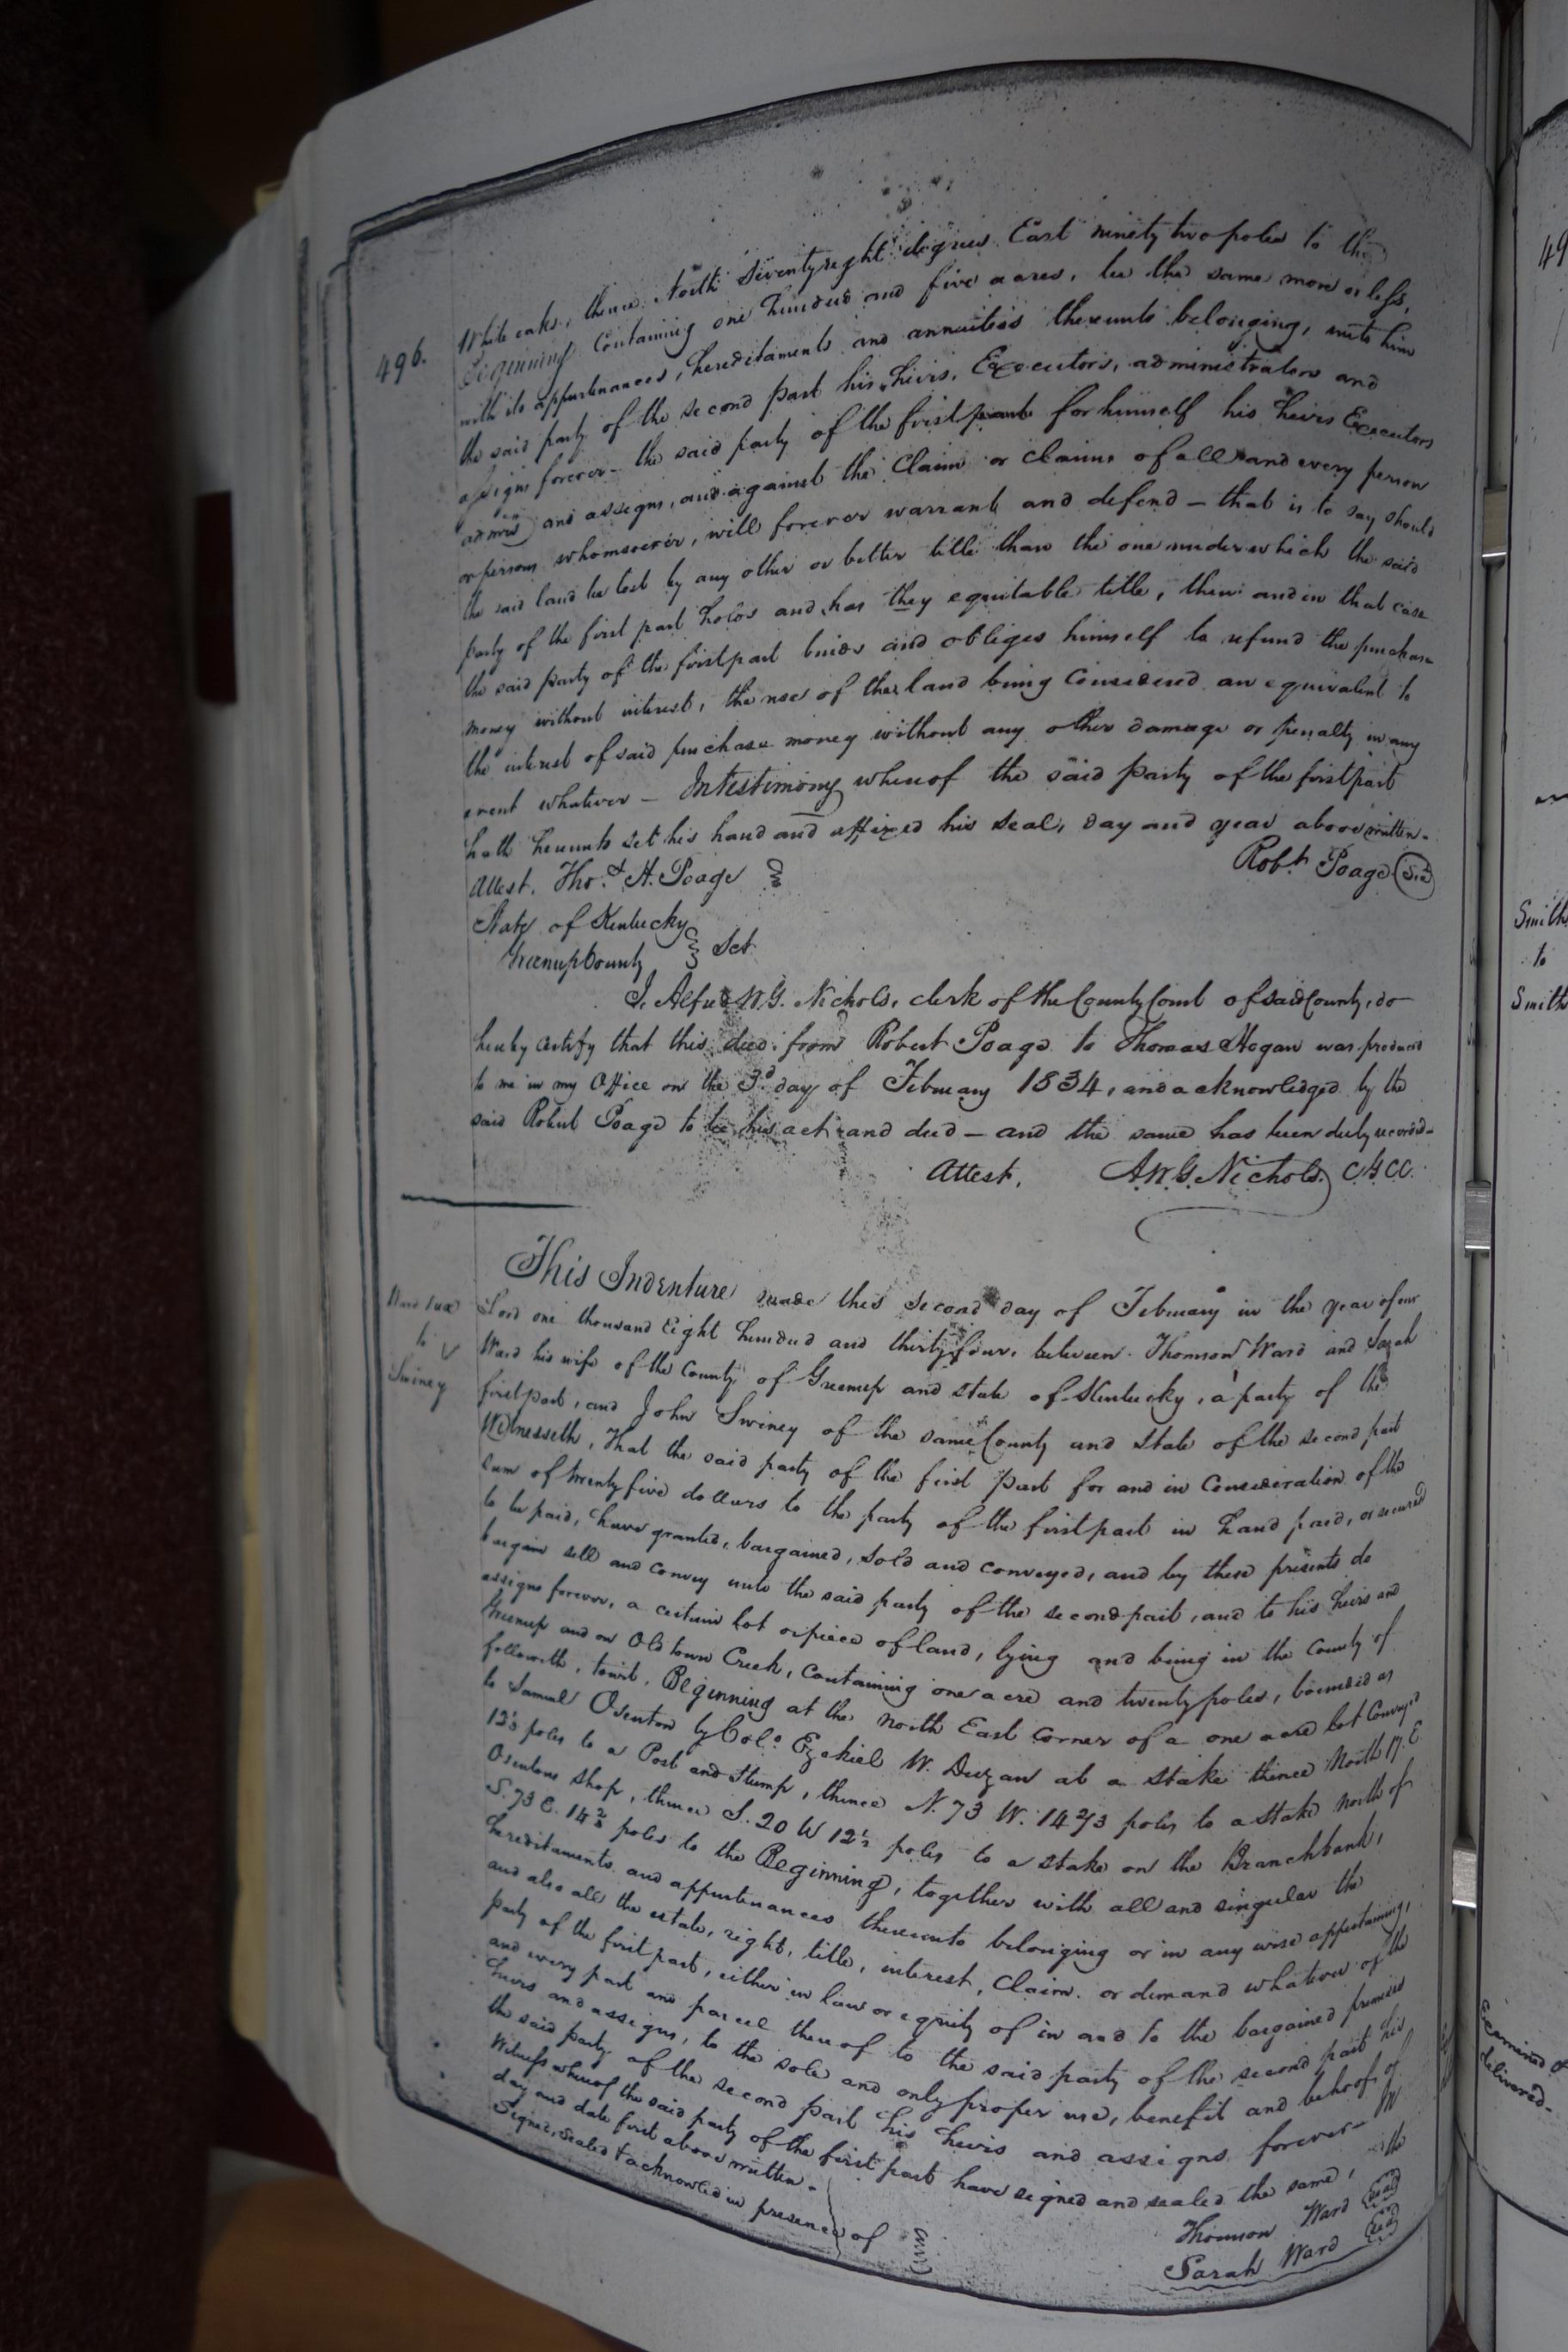 496.
White oaks, thence North Seventy eight degrees East ninety two poles to the
Beginning Containing one hundred and five acres, be the same more or less,
with its appurtenances, hereditaments and annuities thereunto belonging, unto him
the said party of the second part his heirs, Executors, administrators and
assigns forever - the said party of the first part for himself his heirs Executors
admrs and assigns, and against the Claim or claims of all and every person
or persons whomsoever, will forever warrant and defend - that is to say should
the said land be lost by any other or better title than the one under which the said
party of the first part holds and has they equitable title, then and in that case
the said party of the first part binds and obliges himself to refund the purchase
money without interest, the use of the land being Considered an equivalent to
the interest of said purchase money without any other damage or penalty in any
event whatever - In testimony whereof the said party of the first part
hath hereunto set his hand and affixed his seal, day and year above written.
Attest. Thos. H. Poage
Robt. Poage
State of Kentucky
Greenup County Sct
I, Alfred W. G. Nichols, clerk of the County Court of said County, do
hereby certify that this deed from Robert Poage to Thomas Hogan was produced
to me in my Office on the 3d day of February 1834, and acknowledged by the
said Robert Poage to be his act and deed - and the same has been duly recorded -
Attest, A.W.G. Nichols, C G CC.
Ward &ux
to
Swiney
This Indenture made this second day of February in the year of our
Lord one thousand Eight hundred and thirty four, between Thomson Ward and Sarah
Ward his wife of the County of Greenup and state of Kentucky, a party of the
first part, and John Swiney of the same County and State of the second part
Witnesseth, That the said party of the first part for and in Consideration of the
sum of twenty five dollars to the party of the first part in hand paid, or secured
to be paid, have granted, bargained, sold and conveyed, and by these presents do
bargain sell and convey unto the said party of the second part, and to his heirs and
assigns forever, a certain lot or piece of land, lying and being in the County of
Greenup and on Old town Creek, containing one acre and twenty poles, bounded as
followeth, towit, Beginning at the North East corner of a one acre lot Conveyed
to Samuel Osenton by Colo. Ezekiel W. Duzan at a stake thence North 17. E
12½ poles to a Post and Stump, thence N. 73 W. 14 2/3 poles to a stake north of
Osentons shop, thence S. 20 W 12½ poles to a stake on the Branch bank,
S. 73 E. 14⅔ poles to the Beginning, together with all and singular the
hereditaments and appurtenances thereunto belonging or in any wise appertaining,
and also all the estate, right, title, interest, Claim. or demand whatever of the
party of the first part, either in law or equity of in and to the bargained premises
and every part and parcel thereof to the said party of the second part his
heirs and assigns, to the sole and only proper use, benefit and behoof of
the said party of the second part his heirs and assigns forever - In
Witness whereof the said party of the first part have signed and sealed the same, the
day and date first above written.
Signed, Sealed & acknowled in presence of
Thomson Ward Seal
Sarah Ward Seal
49
Smith
to
Smith
Examined &
delivered.